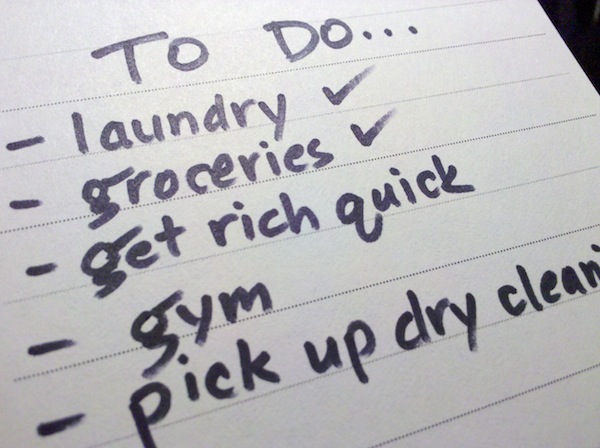 To Do...
- laundry ✓
- groceries ✓
- get rich quick
- gym
- pick up dry clean